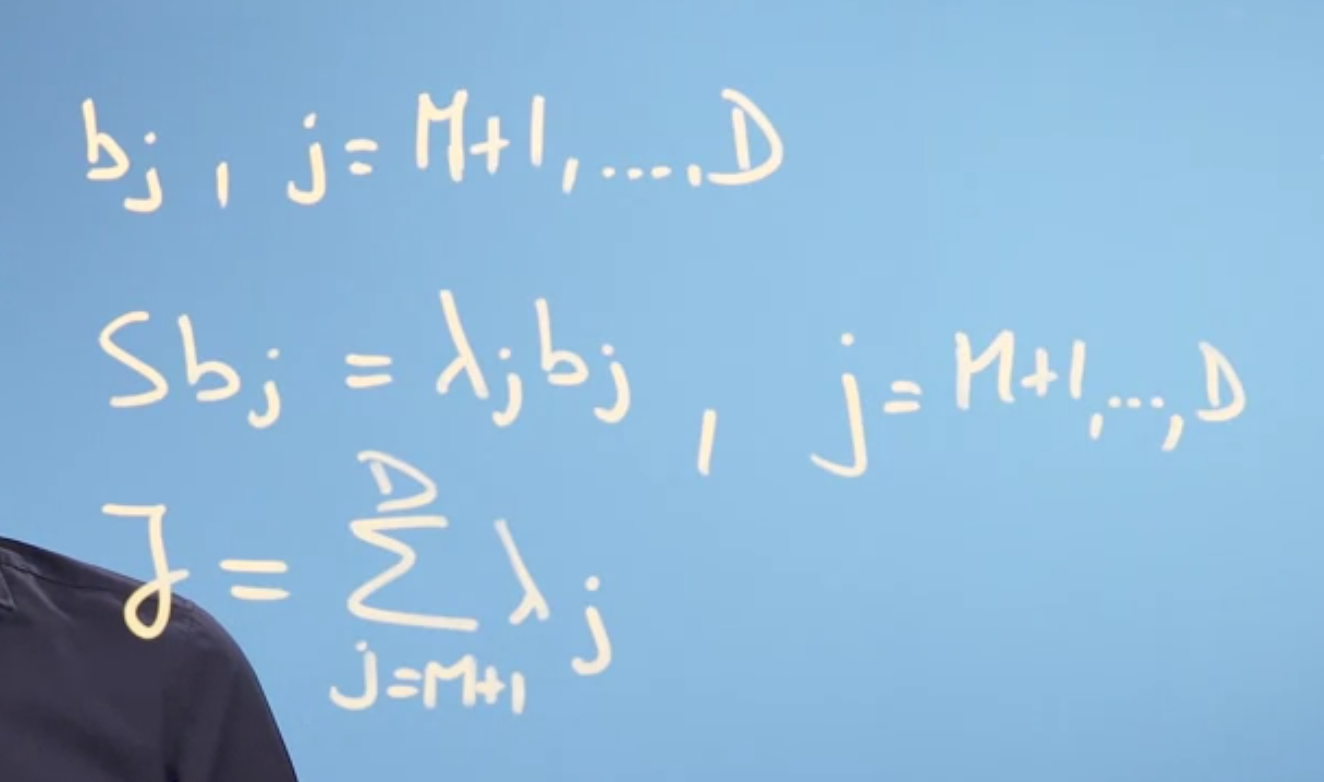 b_j , j = M+1, ..., D
S b_j = λ_j b_j , j = M+1, ..., D
J = ∑_{j=M+1}^{D} λ_j